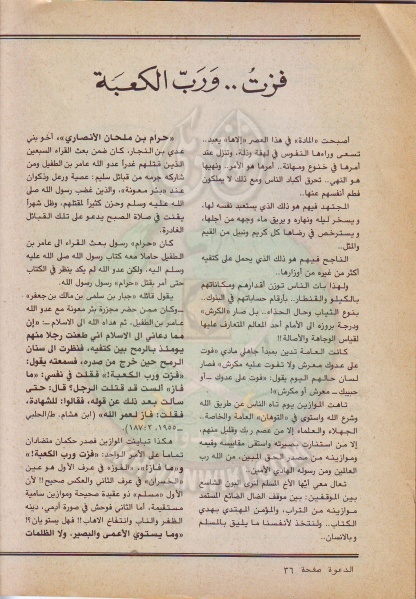 فزتُ .. وربّ الكعبة
أصبحت «المادة» في هذا العصر «إلاها» يعبد..
تسعى وراءها النفوس في لهفة وذلة، وتنزل عند
أمرها في خنوع ومهانة.. أمرها هو الأمر.. ونهيها
هو النهي.. تحرق أكباد الناس ومع ذلك لا يملكون
فطم أنفسهم عنها..
المجتهد فيهم هو ذلك الذي يستعبد نفسه لها،
ويسخر ليله ونهاره ويريق ماء وجهه من أجلها،
ويسترخص في رضاها كل كريم ونبيل من القيم
والمثل..
الناجح فيهم هو ذلك الذي يحمل على كتفيه
أكثر من غيره من أوزارها..
ولهذا بات الناس توزن أقدارهم ومكاناتهم
بالكيلو والقنطار.. بأرقام حساباتهم في البنوك..
بنوع الثياب وحال الحذاء.. بل صار «الكرش»
ودرجة بروزه إلى الأمام أحد المعالم المتعارف عليها
لقياس الوجاهة والأصالة!!
كانت العامة تدين بمبدأ جاهلي مادي «فوت
على عدوك معرش ولا تفوت عليه مكرش» فصار
لسان حالهم اليوم يقول: «فوت على عدوك – أو
حبيبك – معرش أو مكرش»!
تاهت الموازين يوم تاه الناس عن طريق الله
وشرع الله واستوى في «التوهان» العامة والخاصة..
الجهلاء والعلماء إلا من عصم ربك وقليل منهم،
إلا من استنارت بصيرته واستقى مقاييسه وقيمه
وموازينه من مصدر الحق المبين، من الله رب
العالمين ومن رسوله الهادي الأمين..
تعال معي أيها الأخ المسلم لنرى البون الشاسع
بين الموقفين: بين موقف الضال الضائع المستمد
موازينه من التراب، والمؤمن المهتدي بهدي
الكتاب.. ولنتخذ لأنفسنا ما يليق بالمسلم
وبالانسان..
«حرام بن ملحان الأنصاري»، أخو بني
عدي بن النجار، كان ضمن بعث القراء السبعين
الذين قتلهم غدراً عدو الله عامر بن الطفيل ومن
شاركه جرمه من قبائل سليم: عصية ورعل وذكوان
عند «بئر معونة»، والذين غضب رسول الله صلى
الله عليه وسلم وحزن كثيراً لقتلهم، وظل شهراً
يقنت في صلاة الصبح يدعو على تلك القبائل
الغادرة.
كان «حرام» رسول بعث القراء إلى عامر بن
الطفيل حاملا معه كتاب رسول الله صلى الله عليه
وسلم اليه، ولكن عدو الله لم يكد ينظر في الكتاب
حتى أمر بقتل «حرام» رسول رسول الله.
يقول قاتله «جبار بن سلمى بن مالك بن جعفر»
– وكان ممن حضر مجزرة بئر معونة مع عدو الله
عامر بن الطفيل، ثم هداه الله الى الاسلام – «إن
مما دعاني الى الاسلام اني طعنت رجلا منهم
يومئذ بالرمح بين كتفيه، فنظرت الى سنان
الرمح حين خرج من صدره، فسمعته يقول:
«فزت ورب الكعبة!» فقلت في نفسي: «ما
فاز! ألست قد قتلت الرجل؟ قال: حتى
سألت بعد ذلك عن قوله، فقالوا: للشهادة،
فقلت: فاز لعمر الله» (ابن هشام، ط/الحلبي
١٩٥٥، ٢: ١٨٧).
هكذا تباينت الموازين فصدر حكمان متضادان
تماما على الأمر الواحد: «فزت ورب الكعبة!»،
و«ما فاز!»، «الفوز» في عرف الأول هو عين
«الخسران» في عرف الثاني والعكس صحيح!! لأن
الأول «مسلم» ذو عقيدة صحيحة وموازين سامية
مستقيمة، أما الثاني فوحش في صورة آدمي، دينه
الظفر والناب وانتفاع الاهاب!! فهل يستويان؟!
«وما يستوي الأعمى والبصير، ولا الظلمات
الدعوة صفحة ٣٦